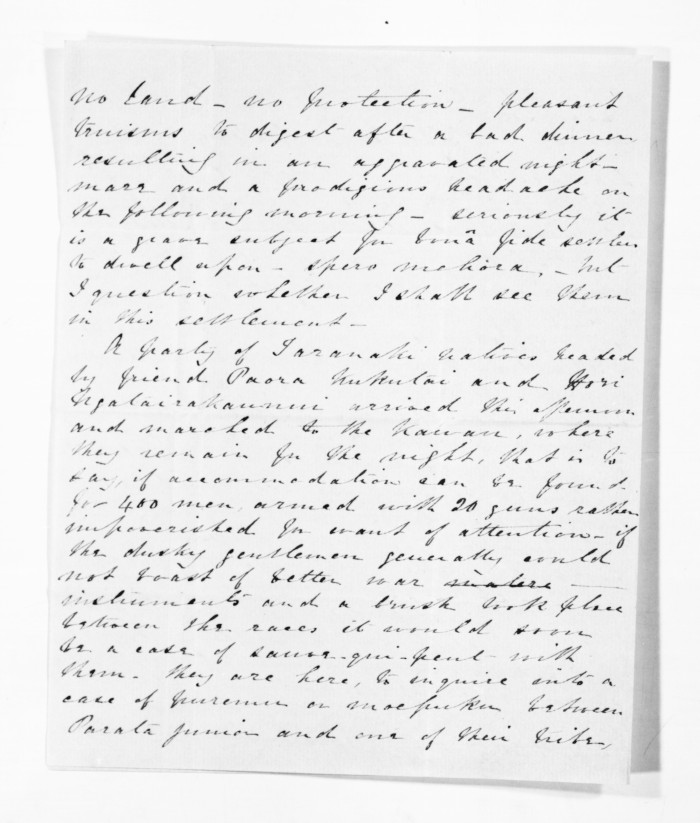 no land – no protection – pleasant
truisms to digest after a bad dinner
resulting in an aggravated night–
mare and a prodigious headache on
the following morning – seriously it
is a grave subject for bonâ fide settlers
to dwell upon – spero meliora, – but
I question whether I shall see them
in this settlement –
A party of Taranaki natives headed
by friend Paora Kukutai and Hori
Ngatairakaunui arrived this afternoon
and marched to the Kawau, where
they remain for the night, that is to
say, if accommodation can be found
for 400 men, armed with 20 guns rather
impoverished for want of attention – if
the dusky gentlemen generally could
not boast of better war
instruments and a brush took place
between the races it would soon
be a case of sauve-qui-peut with
them – they are here, to inquire into a
case of puremu or moepuku between
Parata junior and one of their tribe,